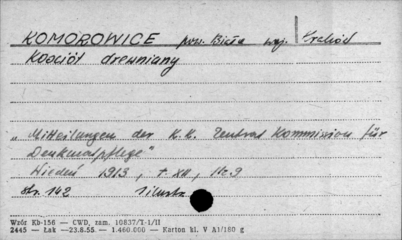 KOMOROWICE pow. Biała woj. Kraków
Kościół drewniany
„Mitteilungen der K.K. Zentral Kommission für
Denkmalpflege"
Wiedeń 1913, t. XII, Nr 9
str. 142 1 ilustr.
Wzór Kb-156 — CWD, zam. 10837/T-1/II
2445 — Łak —23.8.55. — 1.460.000 — Karton kl. V A1/180 g